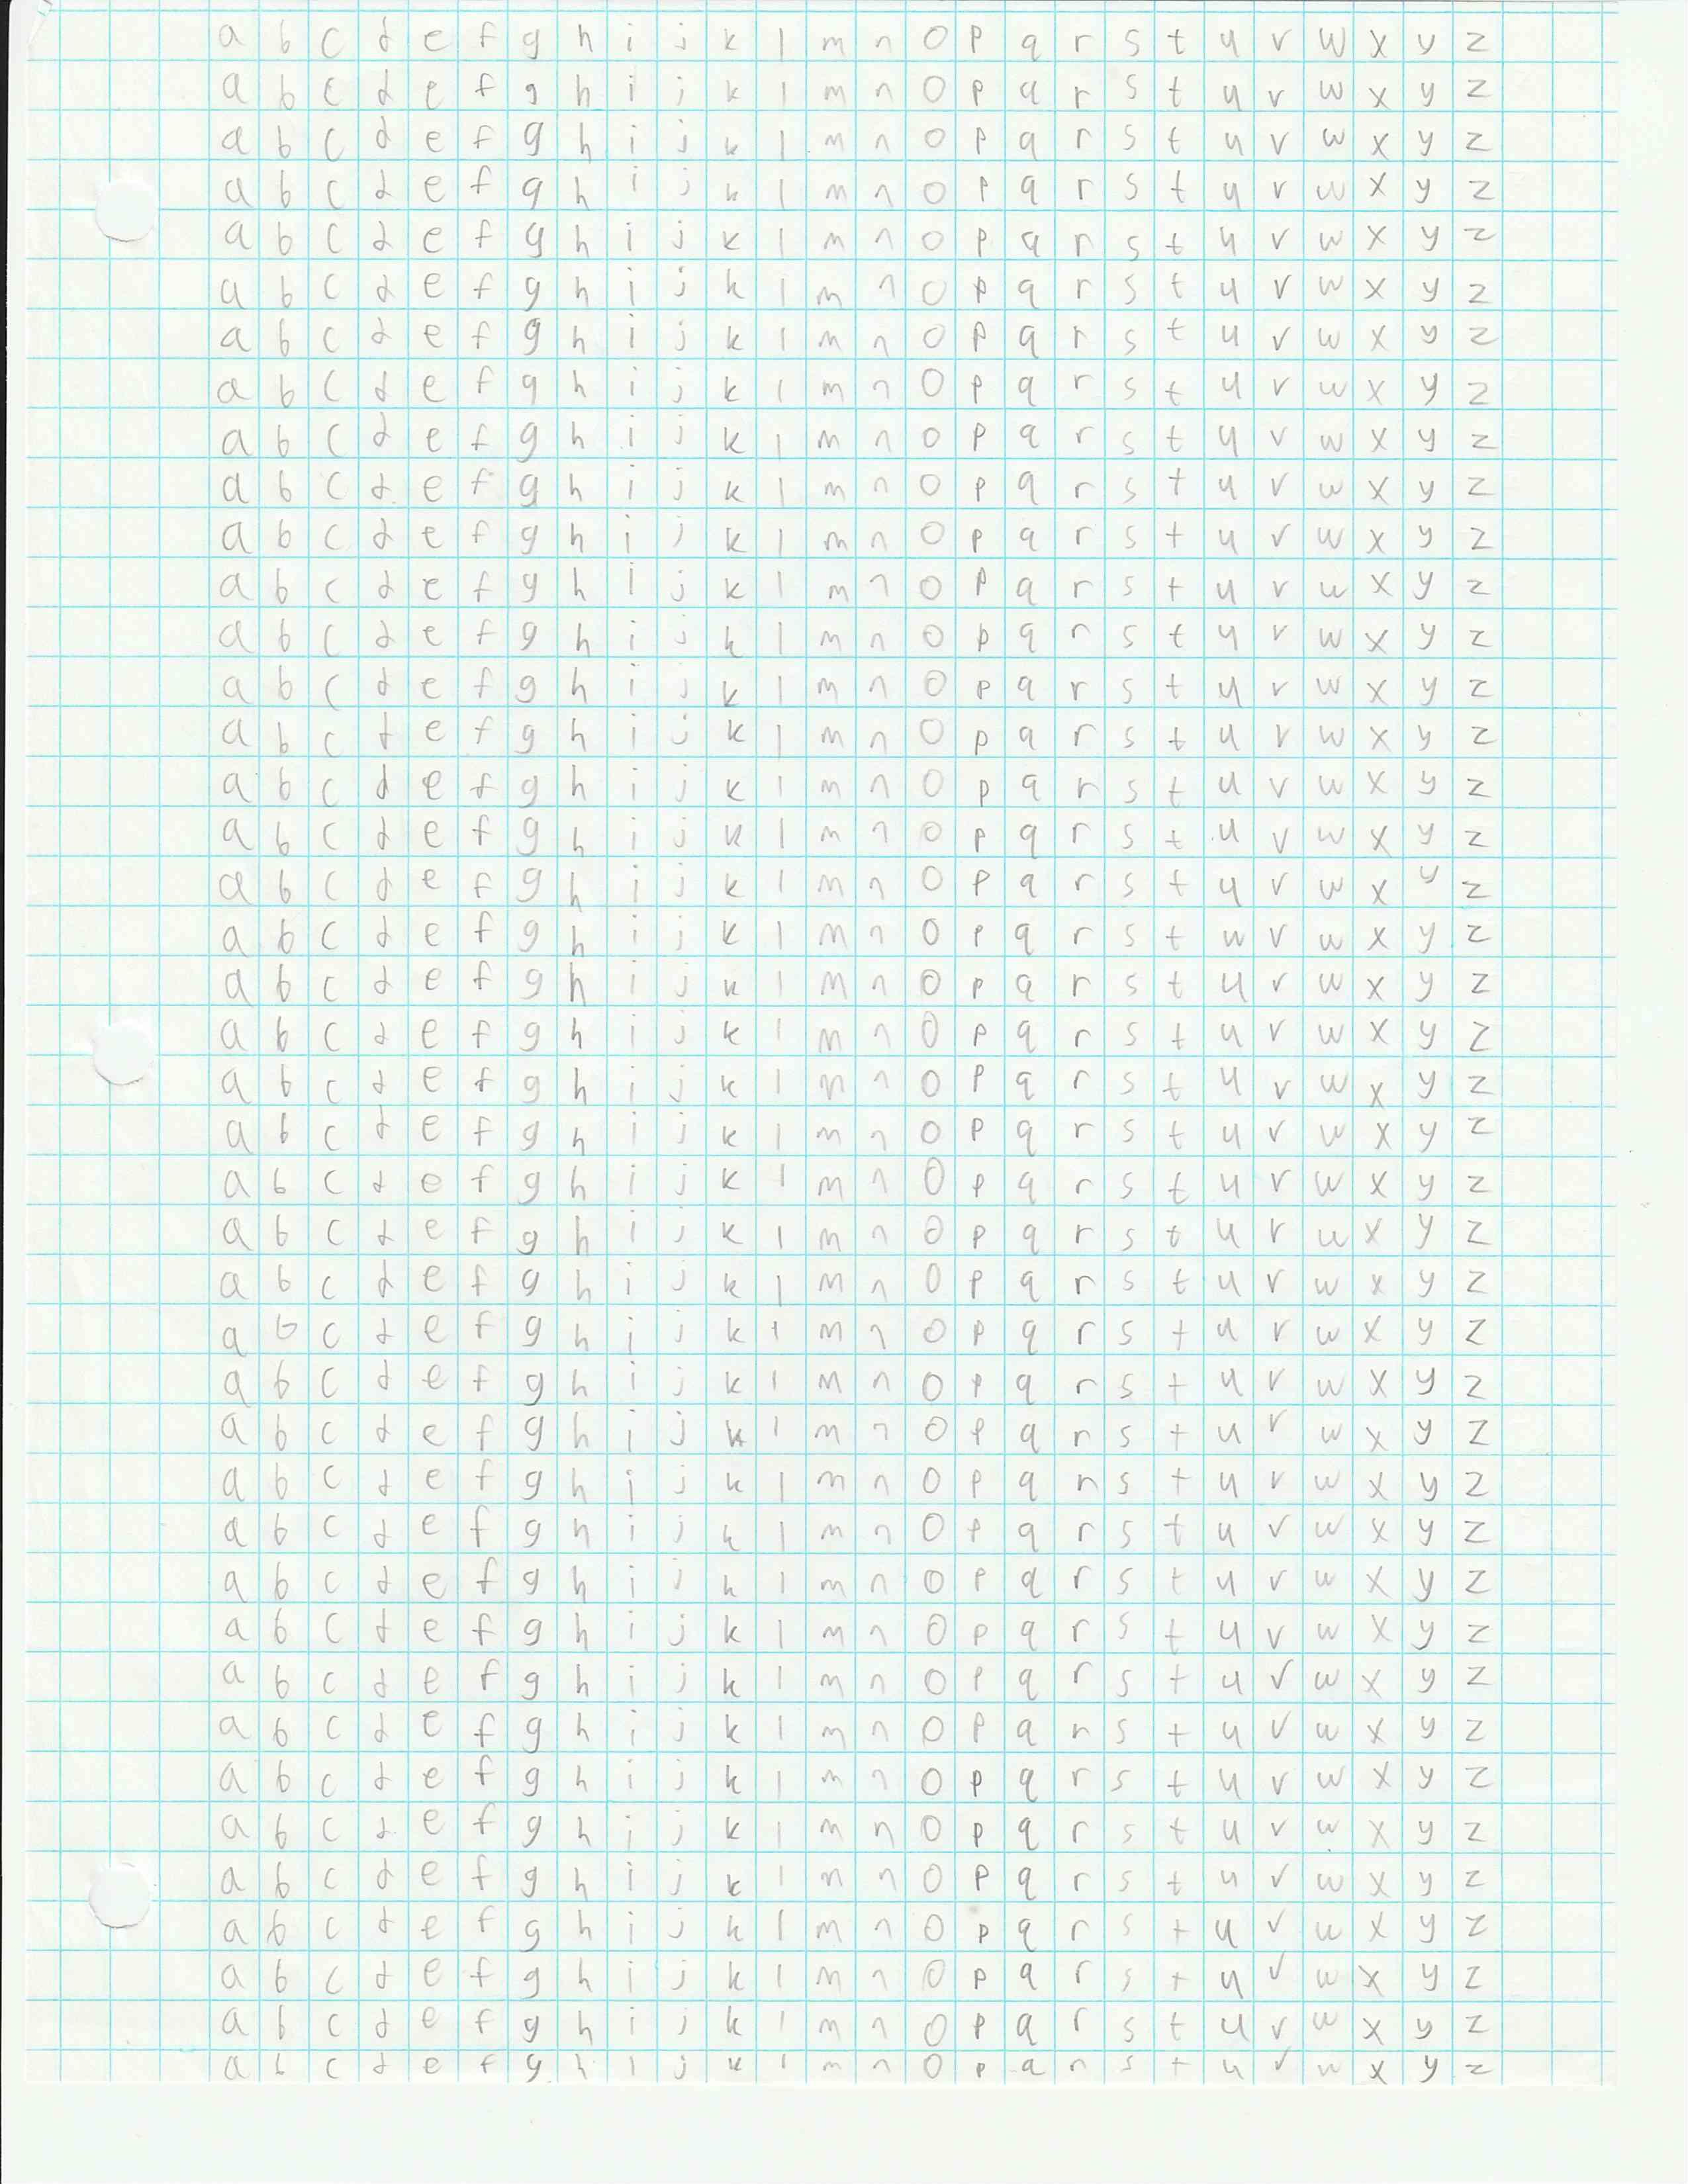 a b c d e f g h i j k l m n o p q r s t u v w x y z
a b c d e f g h i j k l m n o p q r s t u v w x y z
a b c d e f g h i j k l m n o p q r s t u v w x y z
a b c d e f g h i j k l m n o p q r s t u v w x y z
a b c d e f g h i j k l m n o p q r s t u v w x y z
a b c d e f g h i j k l m n o p q r s t u v w x y z
a b c d e f g h i j k l m n o p q r s t u v w x y z
a b c d e f g h i j k l m n o p q r s t u v w x y z
a b c d e f g h i j k l m n o p q r s t u v w x y z
a b c d e f g h i j k l m n o p q r s t u v w x y z
a b c d e f g h i j k l m n o p q r s t u v w x y z
a b c d e f g h i j k l m n o p q r s t u v w x y z
a b c d e f g h i j k l m n o p q r s t u v w x y z
a b c d e f g h i j k l m n o p q r s t u v w x y z
a b c d e f g h i j k l m n o p q r s t u v w x y z
a b c d e f g h i j k l m n o p q r s t u v w x y z
a b c d e f g h i j k l m n o p q r s t u v w x y z
a b c d e f g h i j k l m n o p q r s t u v w x y z
a b c d e f g h i j k l m n o p q r s t w v w x y z
a b c d e f g h i j k l m n o p q r s t u v w x y z
a b c d e f g h i j k l m n o p q r s t u v w x y z
a b c d e f g h i j k l m n o p q r s t u v w x y z
a b c d e f g h i j k l m n o p q r s t u v w x y z
a b c d e f g h i j k l m n o p q r s t u v w x y z
a b c d e f g h i j k l m n o p q r s t u v w x y z
a b c d e f g h i j k l m n o p q r s t u v w x y z
a b c d e f g h i j k l m n o p q r s t u v w x y z
a b c d e f g h i j k l m n o p q r s t u v w x y z
a b c d e f g h i j k l m n o p q r s t u v w x y z
a b c d e f g h i j k l m n o p q r s t u v w x y z
a b c d e f g h i j k l m n o p q r s t u v w x y z
a b c d e f g h i j k l m n o p q r s t u v w x y z
a b c d e f g h i j k l m n o p q r s t u v w x y z
a b c d e f g h i j k l m n o p q r s t u v w x y z
a b c d e f g h i j k l m n o p q r s t u v w x y z
a b c d e f g h i j k l m n o p q r s t u v w x y z
a b c d e f g h i j k l m n o p q r s t u v w x y z
a b c d e f g h i j k l m n o p q r s t u v w x y z
a b c d e f g h i j k l m n o p q r s t u v w x y z
a b c d e f g h i j k l m n o p q r s t u v w x y z
a b c d e f g h i j k l m n o p q r s t u v w x y z
a b c d e f g h i j k l m n o p q r s t u v w x y z